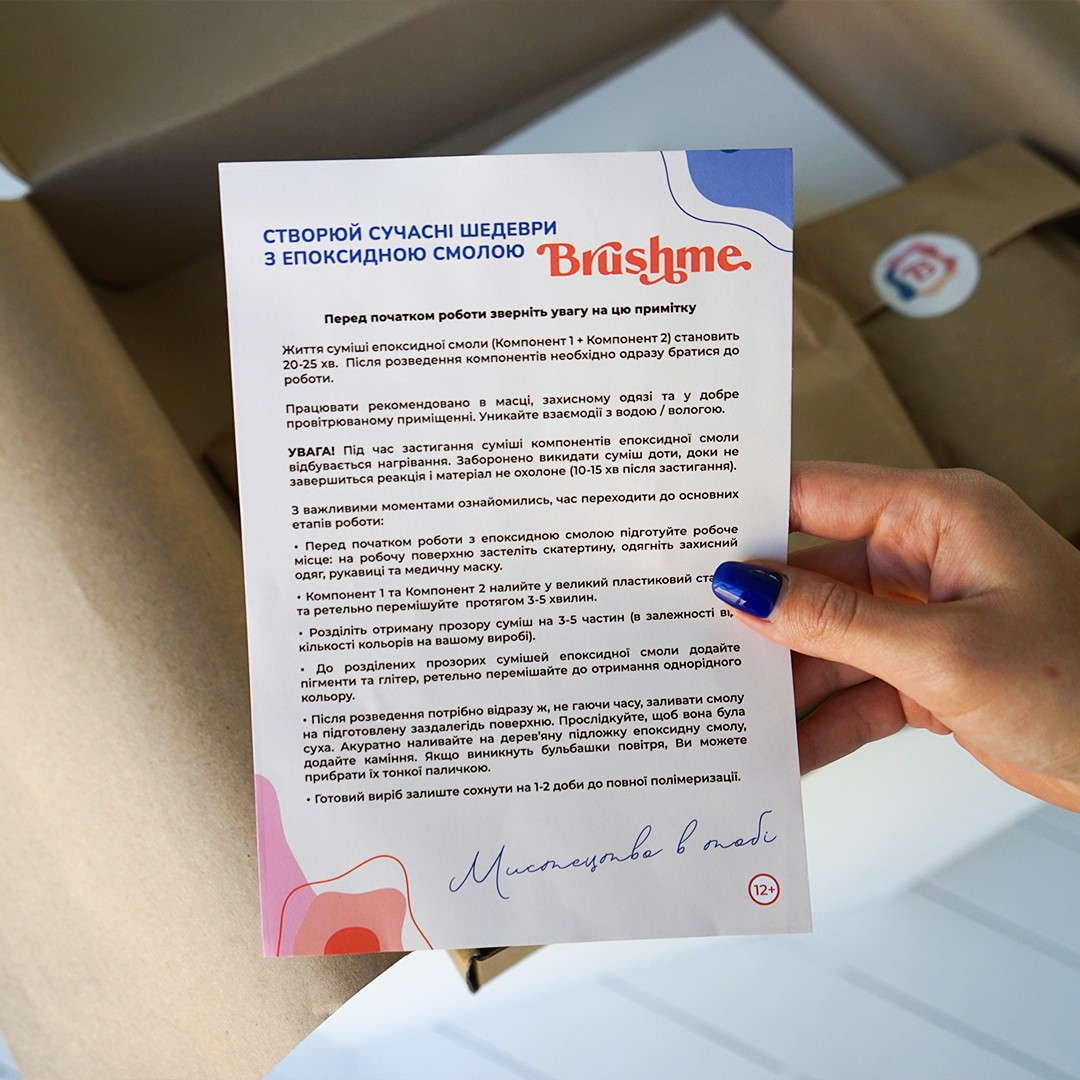 СТВОРЮЙ СУЧАСНІ ШЕДЕВРИ
З ЕПОКСИДНОЮ СМОЛОЮ
Brushme.
Перед початком роботи зверніть увагу на цю примітку
Життя суміші епоксидної смоли (Компонент 1 + Компонент 2) становить
20-25 хв. Після розведення компонентів необхідно одразу братися до
роботи.
Працювати рекомендовано в масці, захисному одязі та у добре
провітрюваному приміщенні. Уникайте взаємодії з водою / вологою.
УВАГА! Під час застигання суміші компонентів епоксидної смоли
відбувається нагрівання. Заборонено викидати суміш доти, доки не
завершиться реакція і матеріал не охолоне (10-15 хв після застигання).
З важливими моментами ознайомились, час переходити до основних
етапів роботи:
• Перед початком роботи з епоксидною смолою підготуйте робоче
місце: на робочу поверхню застеліть скатертину, одягніть захисний
одяг, рукавиці та медичну маску.
• Компонент 1 та Компонент 2 налийте у великий пластиковий
та ретельно перемішуйте протягом 3-5 хвилин.
• Розділіть отриману прозору суміш на 3-5 частин (в залежності
кількості кольорів на вашому виробі).
• До розділених прозорих сумішей епоксидної смоли додайте
пігменти та глітер, ретельно перемішайте до отримання однорідного
кольору.
• Після розведення потрібно відразу ж, не гаючи часу, заливати смолу
на підготовлену заздалегідь поверхню. Прослідкуйте, щоб вона була
суха. Акуратно наливайте на дерев'яну підложку епоксидну смолу,
додайте каміння. Якщо виникнуть бульбашки повітря, Ви можете
прибрати їх тонкої паличкою.
• Готовий виріб залиште сохнути на 1-2 доби до повної полімеризації.
Мистецтво в тобі
12+